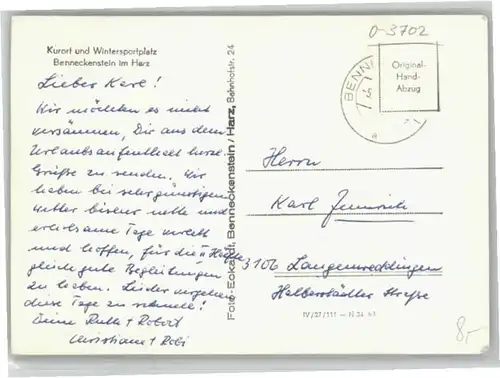 0-3702
Kurort und Wintersportplatz
Benneckenstein im Harz
Lieber Karl!
Wir möchten es nicht
versäumen, Dir aus dem
Urlaubsaufenthalt herzl.
Grüße zu senden. Wir
haben bei sehr günstigem
Wetter bisher nette und
erholsame Tage verlebt
und hoffen, für die II. Hälfte
gleich gute Begleitungen
zu haben. Leider vergehen
diese Tage zu schnell!
Deine Ruth + Robert
Christiane + Robi
Foto-Eckardt, Benneckenstein/Harz, Bahnhofstr. 24
BENNE
Original-
Hand-
Abzug
a
Herrn
Karl
3106 Langenweddingen
Halberstädter Straße
IV/27/111 — N 24 61
8,-